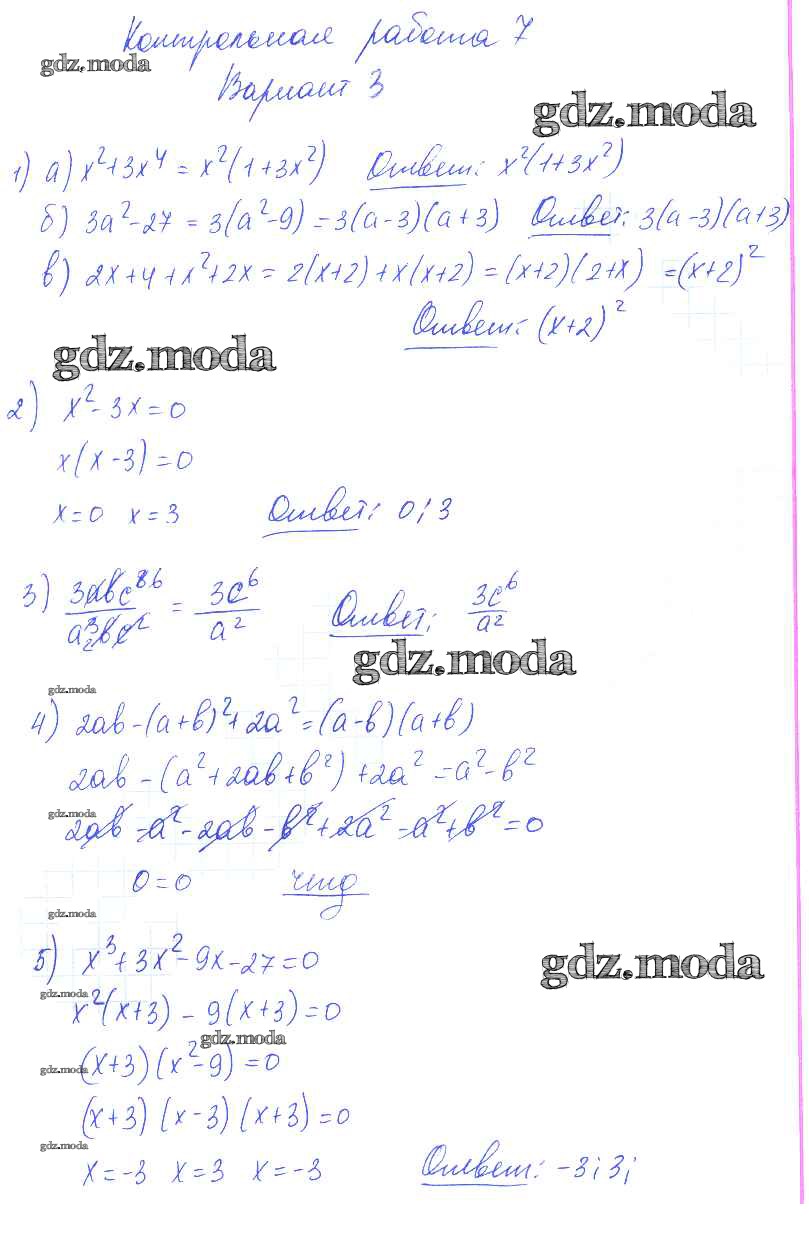 Контрольная работа 7
gdz.moda
Вариант 3
gdz.moda
1) а) x²+3x⁴ = x²(1+3x²) Ответ: x²(1+3x²)
б) 3a²-27 = 3(a²-9) = 3(a-3)(a+3) Ответ: 3(a-3)(a+3)
в) 2x+4+x²+2x = 2(x+2)+x(x+2) = (x+2)(2+x) = (x+2)²
Ответ: (x+2)²
gdz.moda
2) x²-3x=0
x(x-3)=0
x=0 x=3 Ответ: 0; 3
3) 3abc⁸ ⁶ / a³₂bc² = 3c⁶ / a² Ответ: 3c⁶ / a²
gdz.moda
gdz.moda
4) 2ab-(a+b)²+2a²=(a-b)(a+b)
2ab-(a²+2ab+b²)+2a²=a²-b²
gdz.moda
2ab-a²-2ab-b²+2a²-a²+b²=0
0=0 чтд
gdz.moda
5) x³+3x²-9x-27=0
gdz.moda
gdz.moda
x²(x+3)-9(x+3)=0
gdz.moda
gdz.moda
(x+3)(x²-9)=0
(x+3)(x-3)(x+3)=0
gdz.moda
x=-3 x=3 x=-3 Ответ: -3; 3;